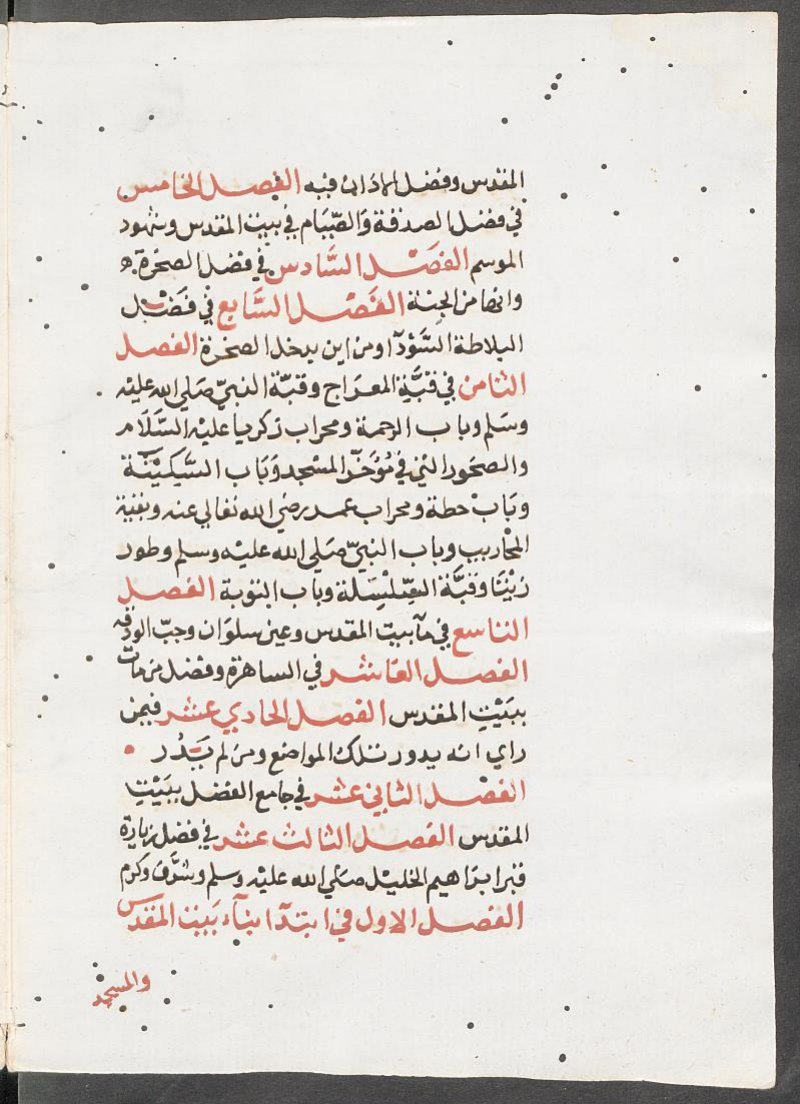 المقدس وفضل الاذان فيه الفصل الخامس
في فضل الصدقة والصّيَام في بيت المقدس وشهود
الموسم الفصَل السَّادس في فضل الصخرة
وانها من الجنة الفَصل السَّابع في فَضْل
البلاطة السَّوْدآ ومن اين يدخل الصخرة الفصل
الثامن في قبَّة المعرَاج وقبّة النبيّ صَلي الله عليْه
وسَلم وباب الرحمة ومحراب زكريا عليْه السَّلَام
والصخور التي في مُؤخَّر المسْجد وَبَاب السَّكِيْنَة
وبَابْ حطة ومحراب عمر رضي الله تعالي عنه وبقية
المحاريب وباب النبيّ صَلي الله عليْه وسلم وطور
زيْتَا وقبَّة السِّلْسِلَة وباب التوبة الفصل
التاسع في مآ بيت المقدس وعين سلوَان وجبّ الورقه
الفصل العَاشر في الساهرَة وفضل من مات
ببَيْتِ المقدس الفصل الحادي عشر فيمن
راي انه يدور تلك المواضع ومن لم يَدُر
الفصْل الثاني عشر في جامع الفضل ببَيْتِ
المقدس الفصل الثالث عشر في فضل زيارة
قبر ابرَاهيم الخليْل صَلي الله عليْه وسلم وشرَّف وكرم
الفصل الاول في ابتدَا بنآء بَيْت المقدس
والمسجد